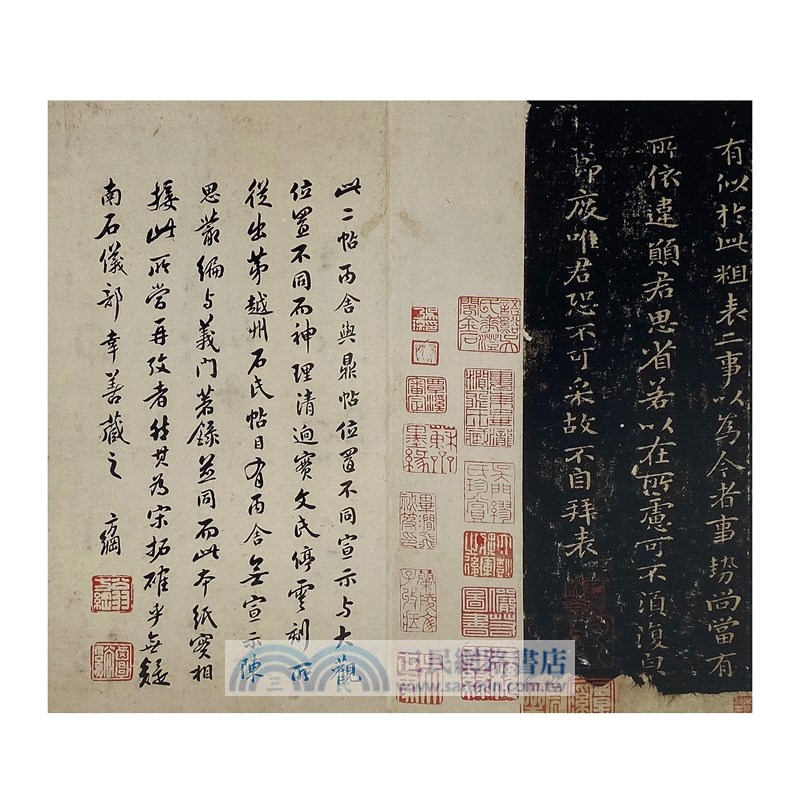 有似於此粗表二事以為今者事勢尚當有
所依違願君思省若以在所慮可不須復皃
節度唯君恐不可采故不自拜表
覃溪審定
蘇齋墨緣
此二帖丙舍與鼎帖位置不同宣示与大觀
位置不同而神理清迥實文氏停雲刻所
從出第越州石氏帖目有丙舍無宣示陳
思叢編与義門著錄並同而此本紙實相
接此所當再攷者然其為宋拓確乎無疑
南石儀部幸善藏之 方綱
三民網路書店
www.sanmin.com.tw